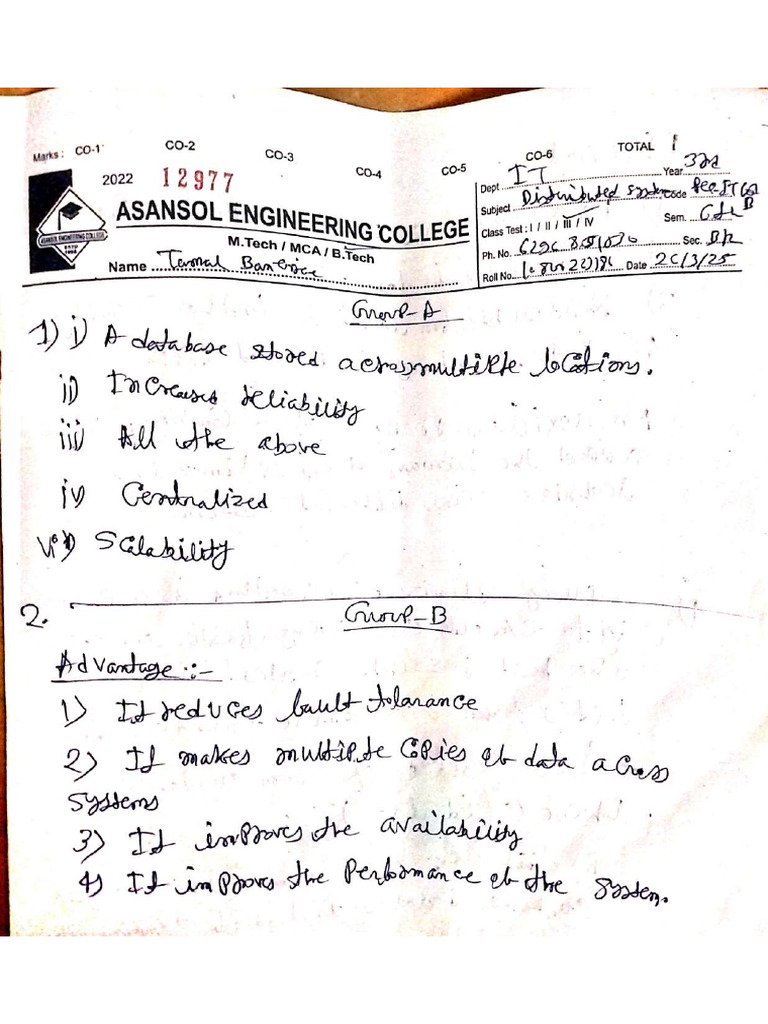 Marks : CO-1 CO-2 CO-3 CO-4 CO-5 CO-6 TOTAL
2022 12977
ASANSOL ENGINEERING COLLEGE
M.Tech / MCA / B.Tech
Name Banerjee
Dept IT Year 3rd
Subject Distributed System Code
Class Test : I / II / III / IV Sem. 6th
Ph. No. Sec.
Roll No. Date 26/3/25
ASANSOL ENGINEERING COLLEGE
Group-A
1) i) A database stored across multiple locations.
ii) Increases reliability
iii) All the above
iv) Centralized
vi) Scalability
2. Group-B
Advantage :-
1) It reduces fault tolarance
2) It makes multiple copies of data across
systems
3) It improves the availability
4) It improves the performance of the system.